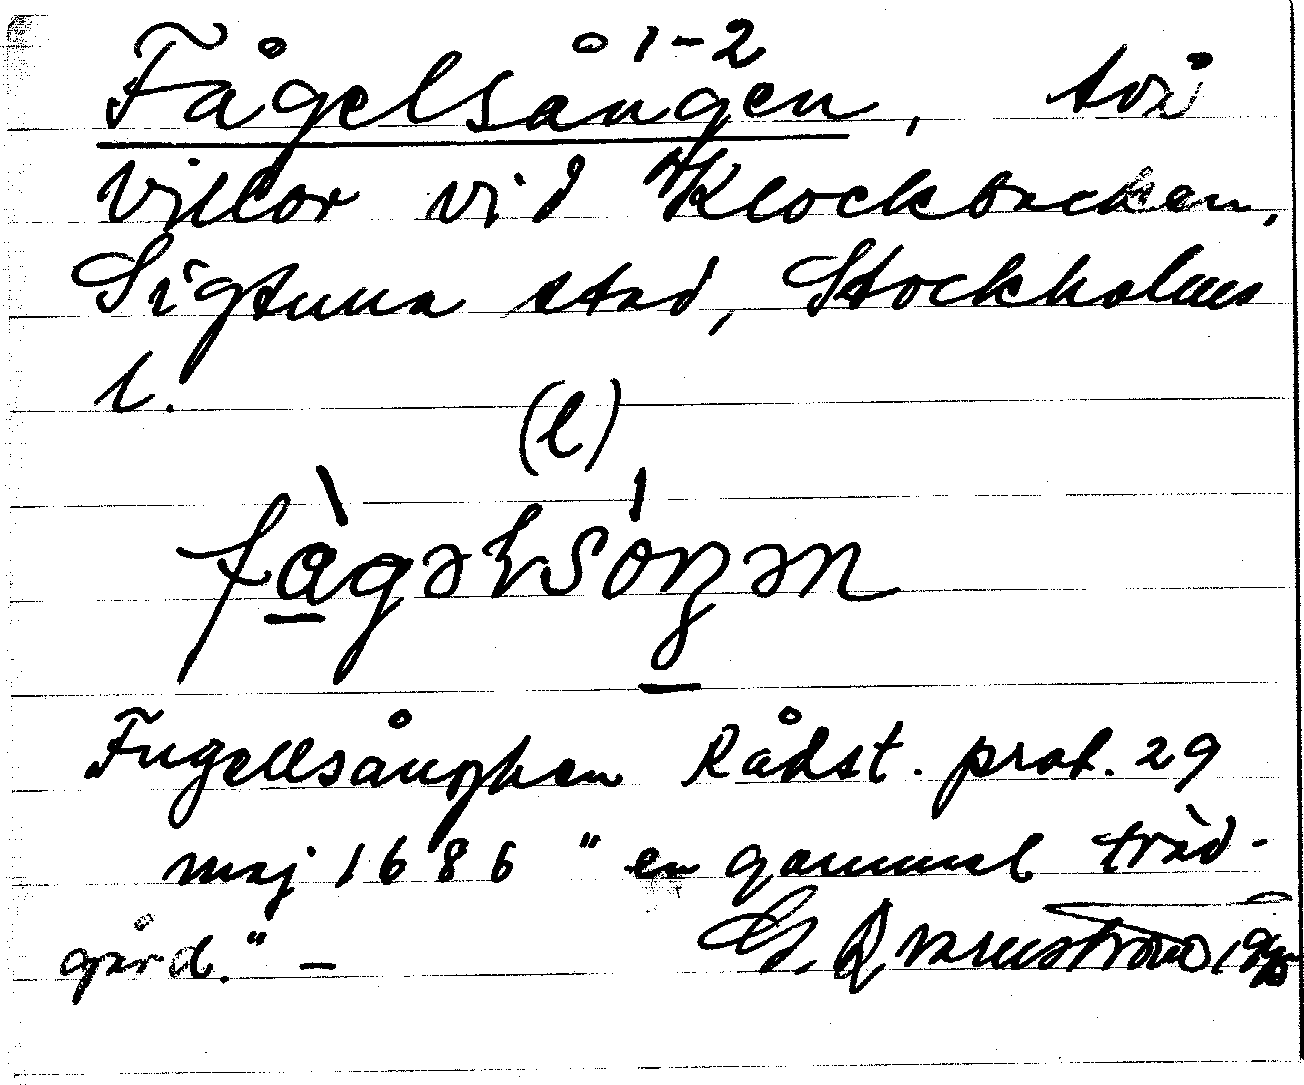 Fågelsången 1-2, två
villor vid Klockbacken,
Sigtuna stad, Stockholms
l.
(l)
fàgəlsóŋən
Fugellsånghen Rådst. prot. 29
maj 1686 "en gammal träd-
gård." –